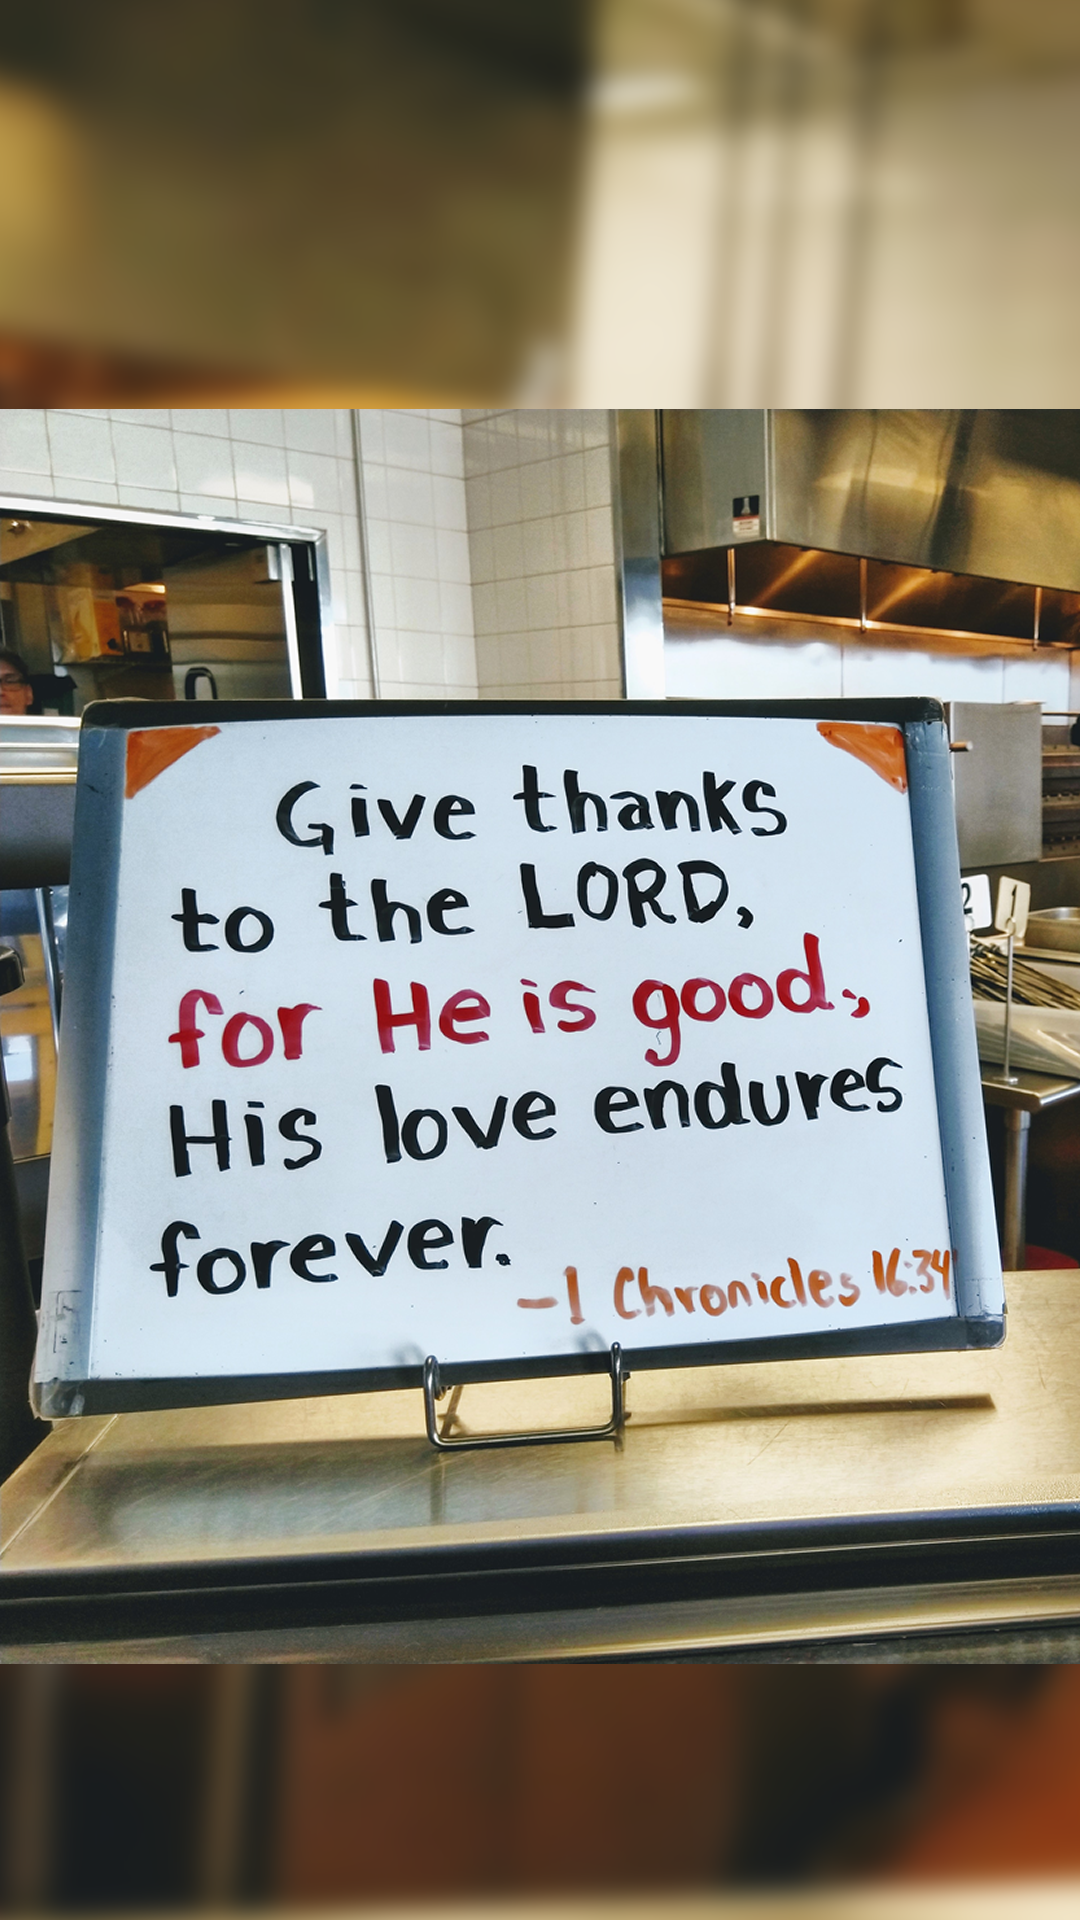 Give thanks
to the LORD,
for He is good.,
His love endures
forever.
-1 Chronicles 16:34
2
1